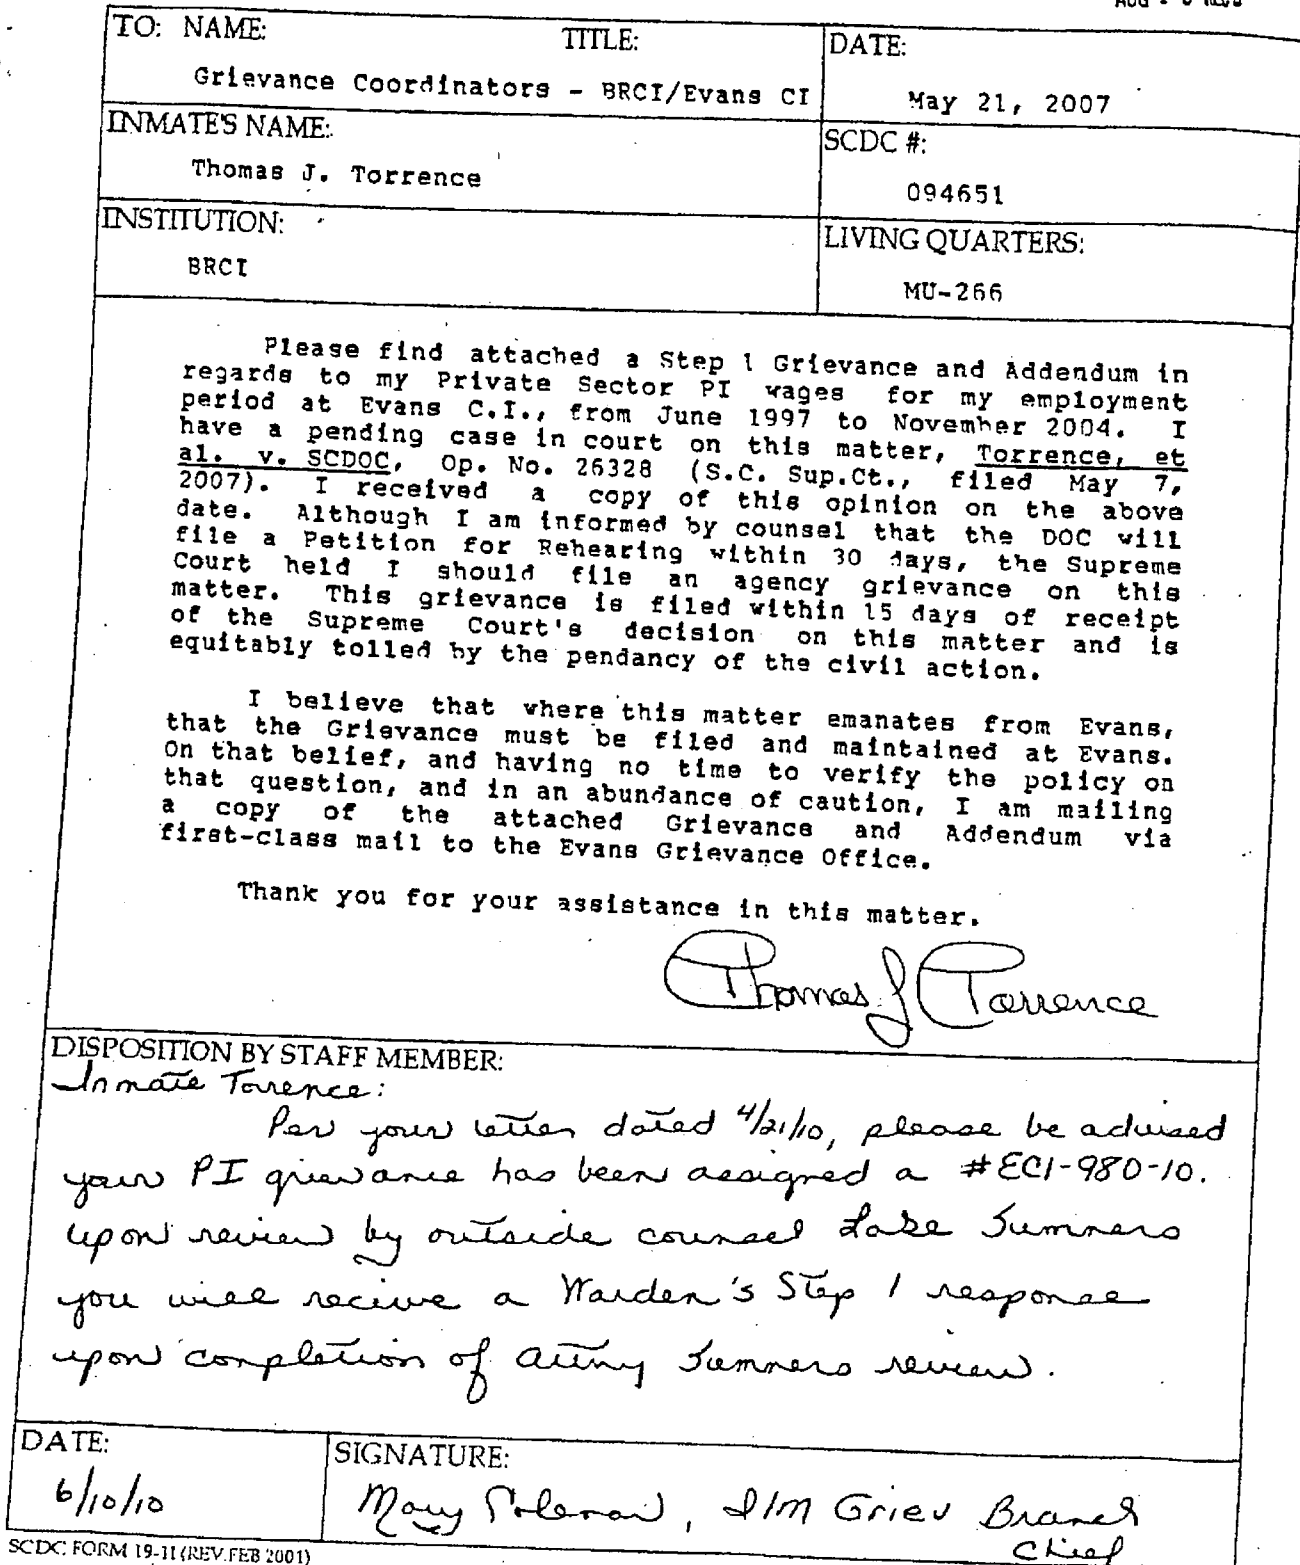 TO: NAME: TITLE: DATE:
Grievance Coordinators - BRCI/Evans CI May 21, 2007
INMATE'S NAME: SCDC #:
Thomas J. Torrence 094651
INSTITUTION: LIVING QUARTERS:
BRCI MU-266
Please find attached a Step 1 Grievance and Addendum in
regards to my Private Sector PI wages for my employment
period at Evans C.I., from June 1997 to November 2004. I
have a pending case in court on this matter, Torrence, et
al. v. SCDOC, Op. No. 26328 (S.C. Sup.Ct., filed May 7,
2007). I received a copy of this opinion on the above
date. Although I am informed by counsel that the DOC will
file a Petition for Rehearing within 30 days, the Supreme
Court held I should file an agency grievance on this
matter. This grievance is filed within 15 days of receipt
of the Supreme Court's decision on this matter and is
equitably tolled by the pendancy of the civil action.
I believe that where this matter emanates from Evans,
that the Grievance must be filed and maintained at Evans.
On that belief, and having no time to verify the policy on
that question, and in an abundance of caution, I am mailing
a copy of the attached Grievance and Addendum via
first-class mail to the Evans Grievance Office.
Thank you for your assistance in this matter.
Thomas J Torrence
DISPOSITION BY STAFF MEMBER:
Inmate Torrence:
Per your letter dated 4/21/10, please be advised
your PI grievance has been assigned a #ECI-980-10.
upon review by outside counsel Lake Summers
you will recieve a Warden's Step 1 response
upon completion of attny Summers review.
DATE: SIGNATURE:
6/10/10 Mary Coleman, I/M Griev Branch
Chief
SCDC FORM 19-11 (REV. FEB 2001)